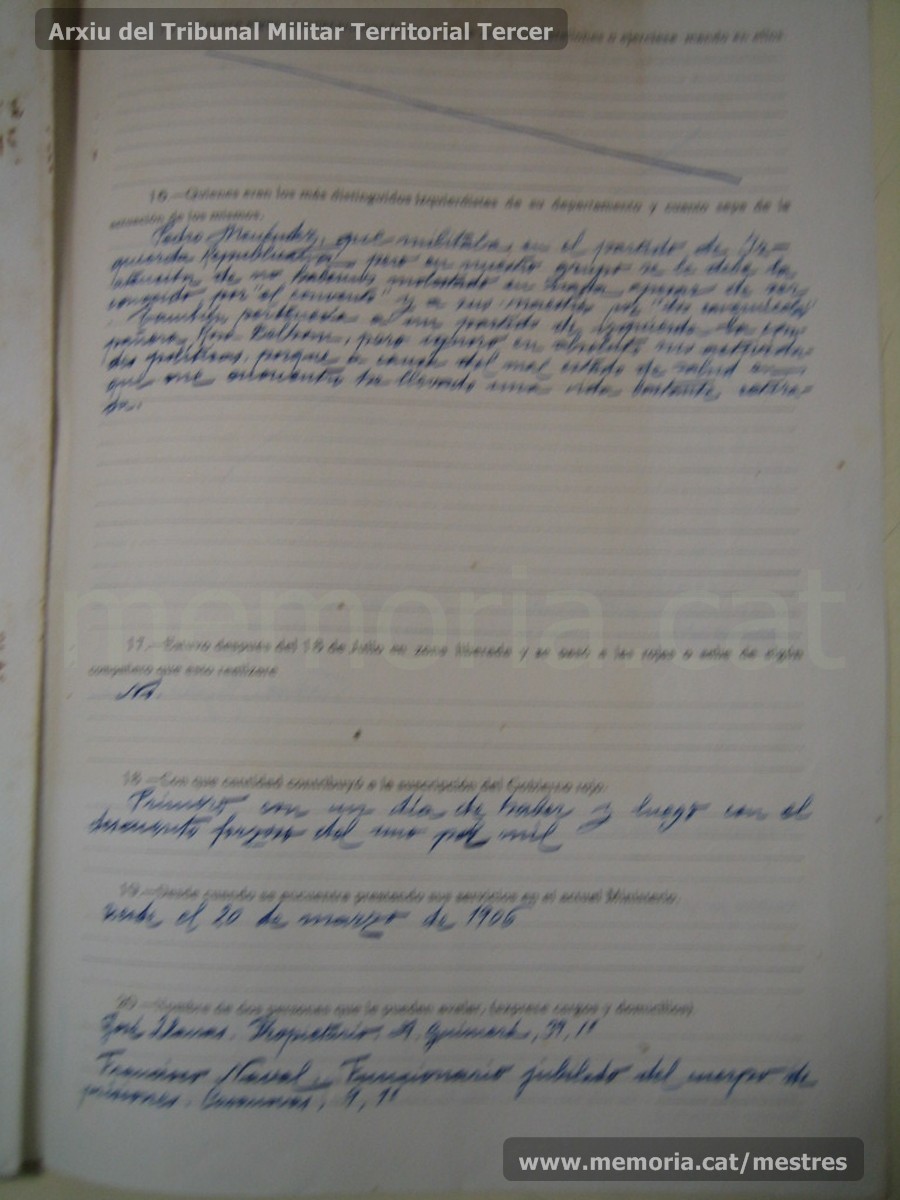 Arxiu del Tribunal Militar Territorial Tercer
16.—Quienes eran los más distinguidos izquierdistas de su departamento y cuanto sepa de la
actuación de los mismos.
Pedro Menéndez, que militaba en el partido de Iz=
quierda Republicana, pero en nuestro grupo se le debe la
atención de no habernos molestado en nada apesar de ser
conocido por "el convento" y a sus maestros por
También pertenecía a un partido de izquierda la com=
pañera, Rosa, pero ignoro en absoluto sus activida=
des políticas, porque a causa del mal estado de salud en
que me encuentro he llevado una vida bastante retira=
da.
17.—Estuvo después del 18 de Julio en zona liberada y se pasó a los rojos o sabe de algún
compañero que esto realizara.
No.
18.—Con que cantidad contribuyó a la suscripción del Gobierno rojo.
Primero con un día de haber y luego con el
descuento forzoso del uno por mil
19.—Desde cuando se encuentra prestando sus servicios en el actual Ministerio.
Desde el 20 de marzo de 1906
20.—Nombre de dos personas que le puedan avalar, (exprese cargos y domicilios).
José Llanas. Propietario. A. Guimerà, 39, 1º
Francisco Naval. Funcionario jubilado del cuerpo de
prisiones. 1º
memoria.cat
www.memoria.cat/mestres